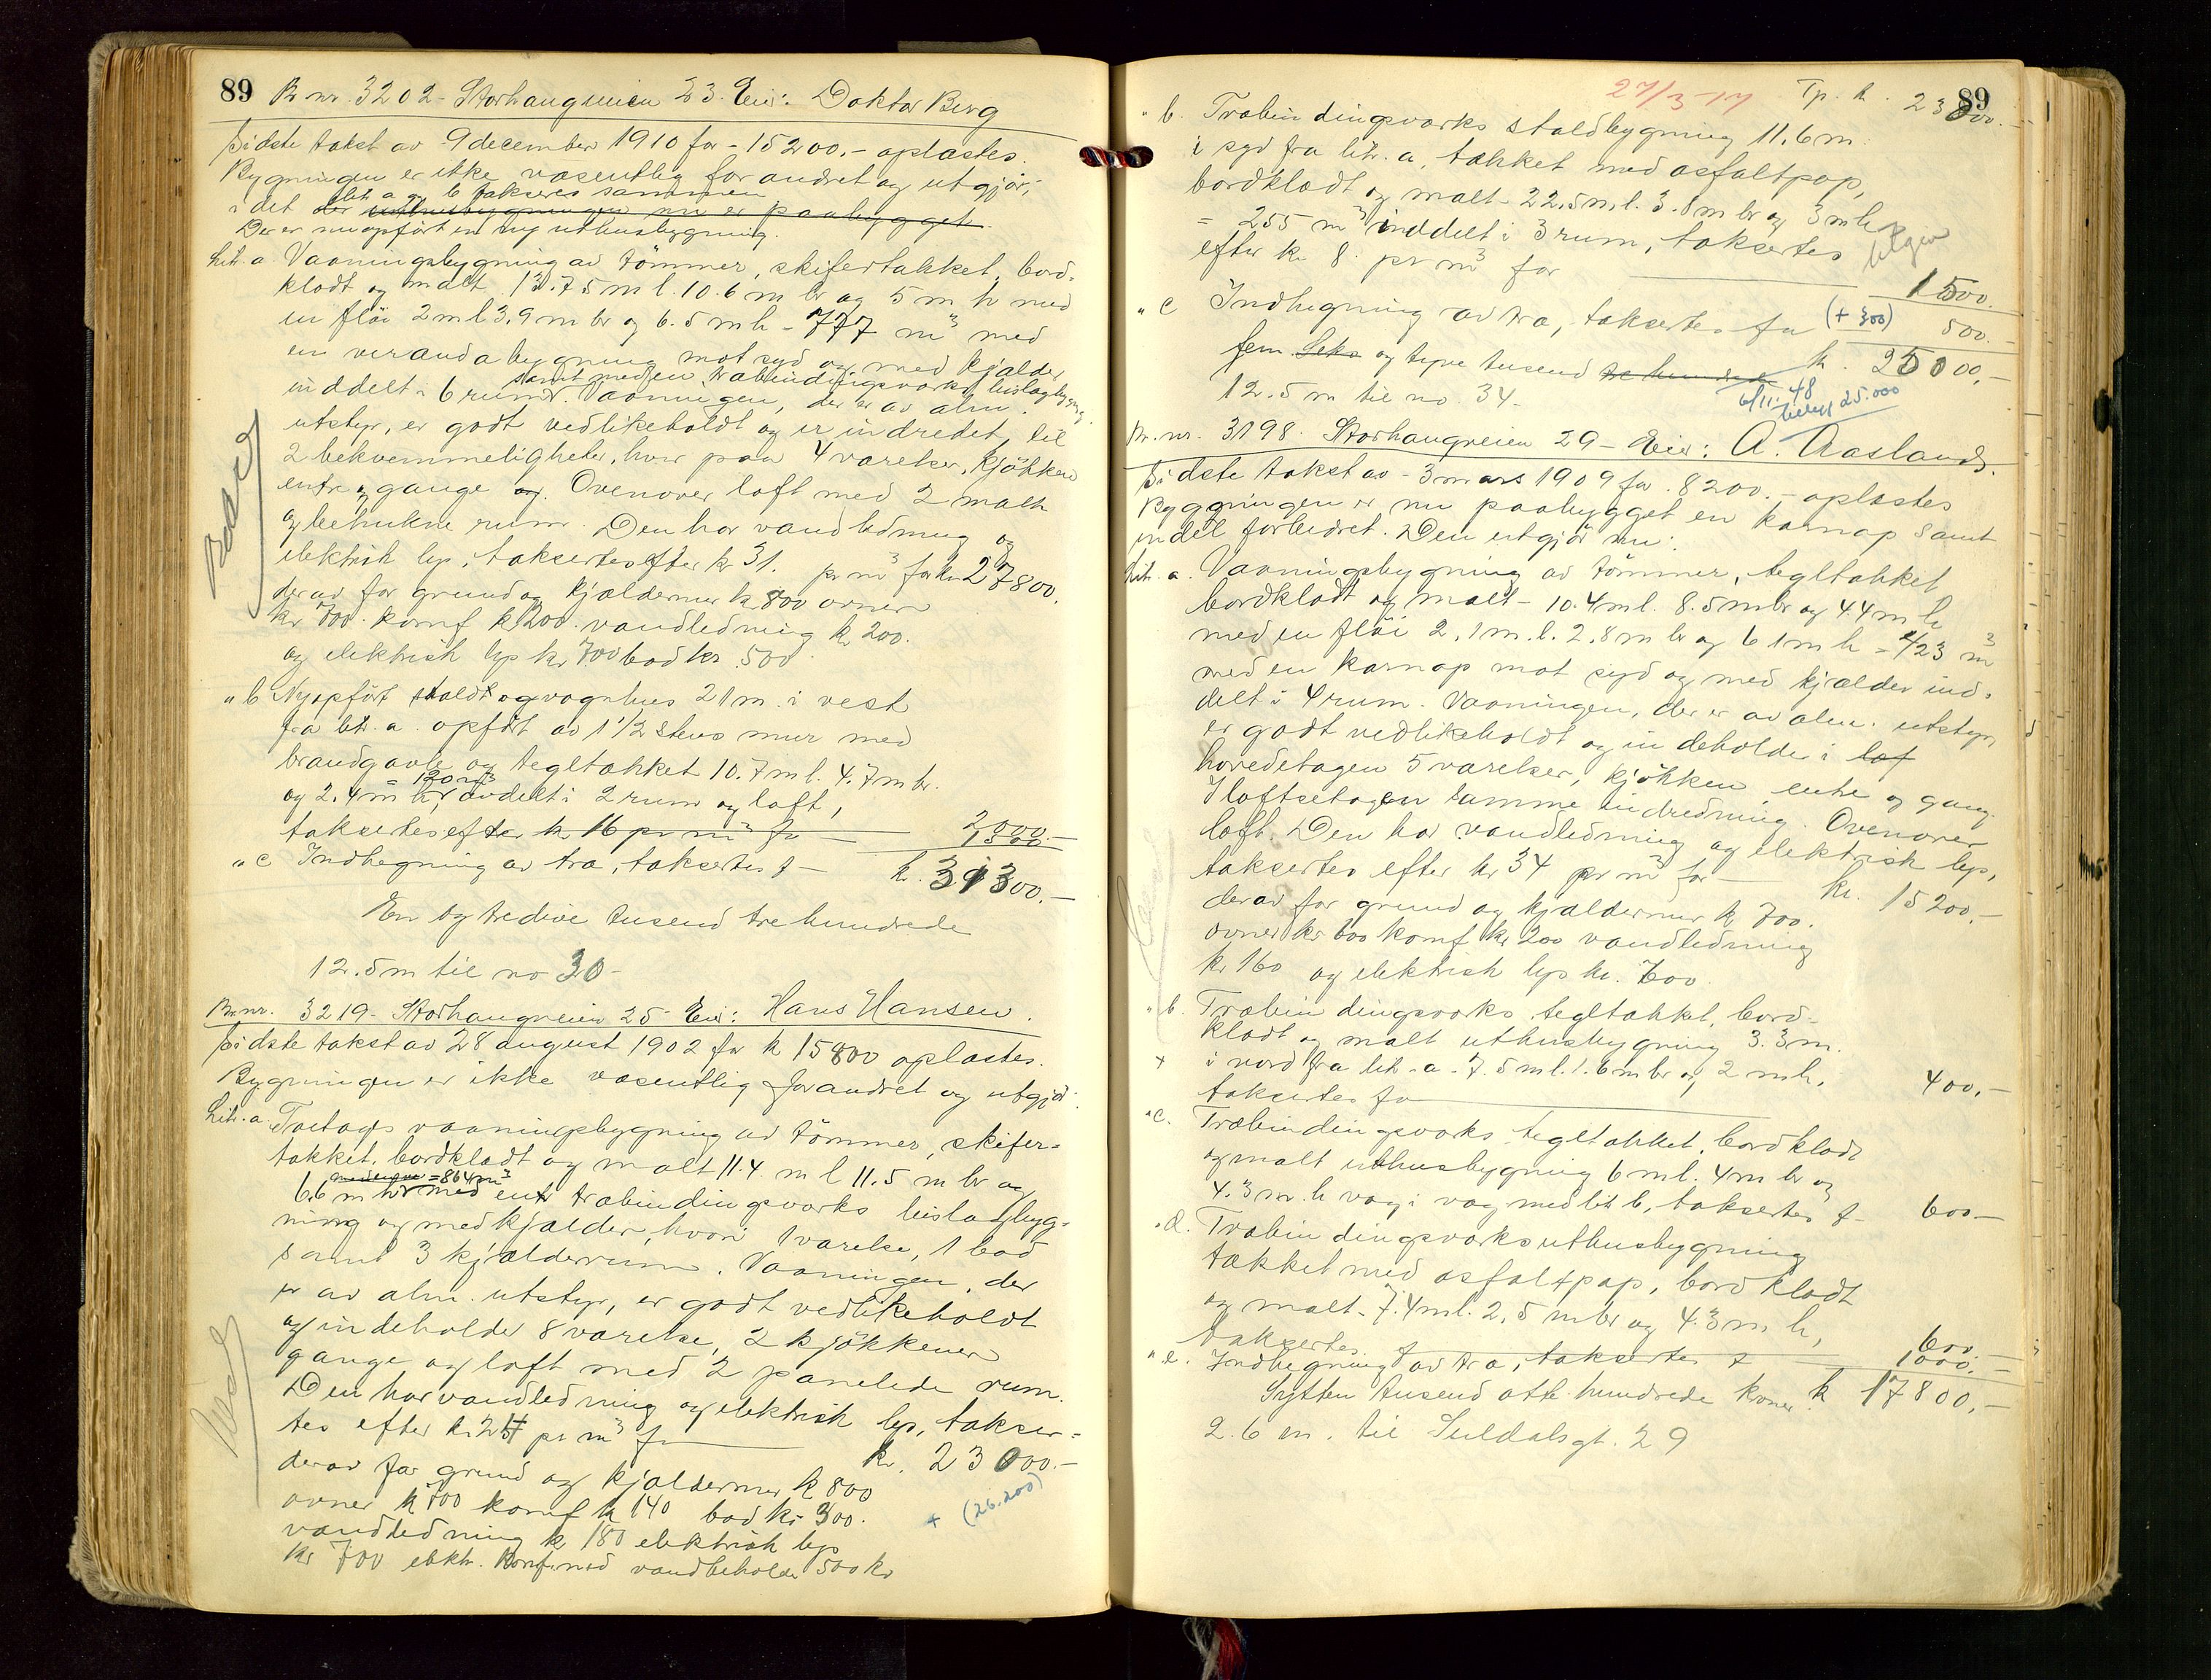 89 Br nr. 3202 - Storhaugveien 23. Eier: Doktor Berg
Sidste takst av 9 december 1910 for - 15200.- oplæstes.
Bygningen er ikke væsentlig forandret og utgjör,
lit a og b takseres sammen
i det der uthusbygningen nu er paabygget.
Der er nu opfört en ny uthusbygning.
Lit. a Vaaningsbygning av tömmer, skifertækket, bord-
klædt og malt 13.75 m l. 10.6 m br og 5 m h med
en flöi 2 m l 3.9 m br og 6.5 m h - 777 m³ med
en verandabygning mot syd og med kjælder
samt med en træbindingsverks bislagbygning
inddelt i 6 rum. Vaaningen, der er av alm.
utstyr, er godt vedlikeholdt og er indredet til
2 bekvemmeligheter, hver paa 4 værelser, kjökken
entre og gange og. Ovenover loft med 2 malte
og betrukne rum. Den har vandledning og
elektrisk lys, taksertes efter kr 31. pr m³ for kr 27800.
derav for grund og kjældermur kr 800 ovner
kr 700. komf kr 200. vandledning kr 200.
og elektrisk lys kr 700 bad kr. 500
" b Nyopfört stald og vognhus 21 m. i vest
fra lit. a. opfört av 1 1/2 stens mur med
brandgavle og tegltækket 10.7 m l. 4.7 m br.
= 120 m³
og 2.4 m h, avdelt i 2 rum og loft,
taksertes efter kr 16 pr m³ for 2000.-
" c Indhegning av træ, taksertes f - 1500.-
kr. 31300.-
En og tredive tusend tre hundrede
12.5 m til no 30 -
Br. nr. 3219 - Storhaugveien 25 - Eier: Hans Hansen.
Sidste takst av 28 august 1902 for kr 15800 oplæstes.
Bygningen er ikke væsentlig forandret og utgjör:
Lit. a. Toetages vaaningsbygning av tömmer, skifer-
tækket, bordklædt og malt 11.4 m l 11.5 m br og
= 864 m³
6.6 m h med en træbindingsverks bislagbyg-
ning og med kjælder, hvori 1 værelse, 1 bad
samt 3 kjælderrum. Vaaningen, der
er av alm. utstyr, er godt vedlikeholdt
og indeholder 8 værelse, 2 kjökkener
gange og loft med 2 panelede rum.
Den har vandledning og elektrisk lys, takser-
tes efter kr. 24 pr m³ for kr. 23000.-
derav for grund og kjældermur kr 800
ovner kr 700 komf kr 140 bad kr 300. + (26.200)
vandledning kr 180 elektrisk lys
kr 700 elektr. komf. med vandbeholder 500 kr
27/3-17 Tp. kr. 23000.- 89
" b. Træbindingsverks staldbygning 11.6 m
i syd fra lit. a. tækket med asfaltpap,
bordklædt og malt - 22.5 m l. 3.8 m br og 3 m h
= 255 m³ inddelt i 3 rum, taksertes
efter kr 8. pr m³ for 1500.
" c Indhegning av træ, taksertes for (+ 300) 500.-
fem Seks og tyve tusend tre hundrede kr. 25000,-
12.5 m til no. 34 - 6/11-48
25.000
Br. nr. 3198. Storhaugveien 29 - Eier: A. Aasland.
Sidste takst av - 3 mars 1909 for. 8200.- oplæstes
Byggningen er nu paabygget en karnap samt
endel forbedret. Den utgjör nu:
Lit. a. Vaaningsbygning av tömmer, tegltækket
bordklædt og malt - 10.4 m l. 8.5 m br og 4.4 m h
med en flöi 2.1 m. l. 2.8 m br og 6.1 m h = 423 m³
med en karnap mot syd og med kjælder ind-
delt i 4 rum. Vaaningen, der er av alm. utstyr,
er godt vedlikeholdt og indeholder i lof
hovedetagen 5 værelser, kjökken entre og gang.
I loftsetagen samme indredning. Ovenover
loft. Den har vandledning og elektrisk lys,
taksertes efter kr 34 pr m³ for kr. 15200.-
derav for grund og kjældermur kr 700.
ovner kr 600 komf kr 200 vandledning
kr 160 og elektrisk lys kr. 600.
" b. Træbindingsverks, tegltækket, bord-
klædt og malt uthusbygning 3.3 m.
+ i nord fra lit. a - 7.5 m l. 1.6 m br og 2 m h.
taksertes for 400.-
" c. Træbindingsverks, tegltækket, bordklædt
og malt uthusbygning 6 m l. 4 m br og
4.3 m. h væg i væg med lit b, taksertes f - 600.-
" d. Træbindingsverks uthusbygning
tækket med asfaltpap, bordklædt
og malt - 7.4 m l. 2.5 m br og 4.3 m h,
taksertes f 600.
" e. Indhegning av træ, taksertes f 1000.-
Sytten tusend otte hundrede kroner kr 17800.-
2.6 m. til Suldalsgt. 29